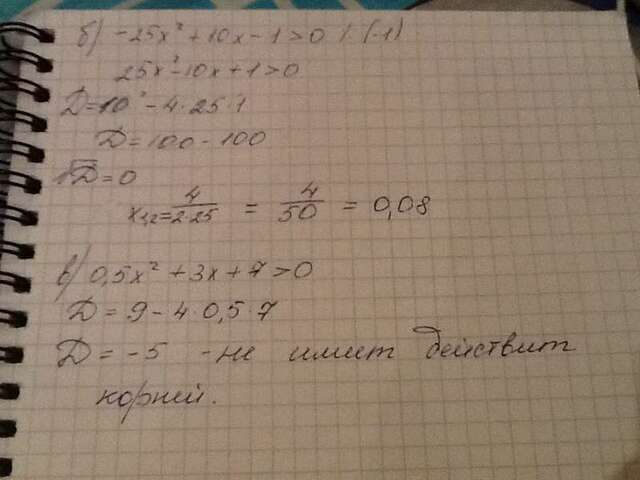 б) -25x² + 10x - 1 > 0 /·(-1)
25x² - 10x + 1 > 0
D = 10² - 4·25·1
D = 100 - 100
√D = 0
x₁,₂ = 4/2·25 = 4/50 = 0,08
в) 0,5x² + 3x + 7 > 0
D = 9 - 4·0,5·7
D = -5 - не имеет действит
корней.